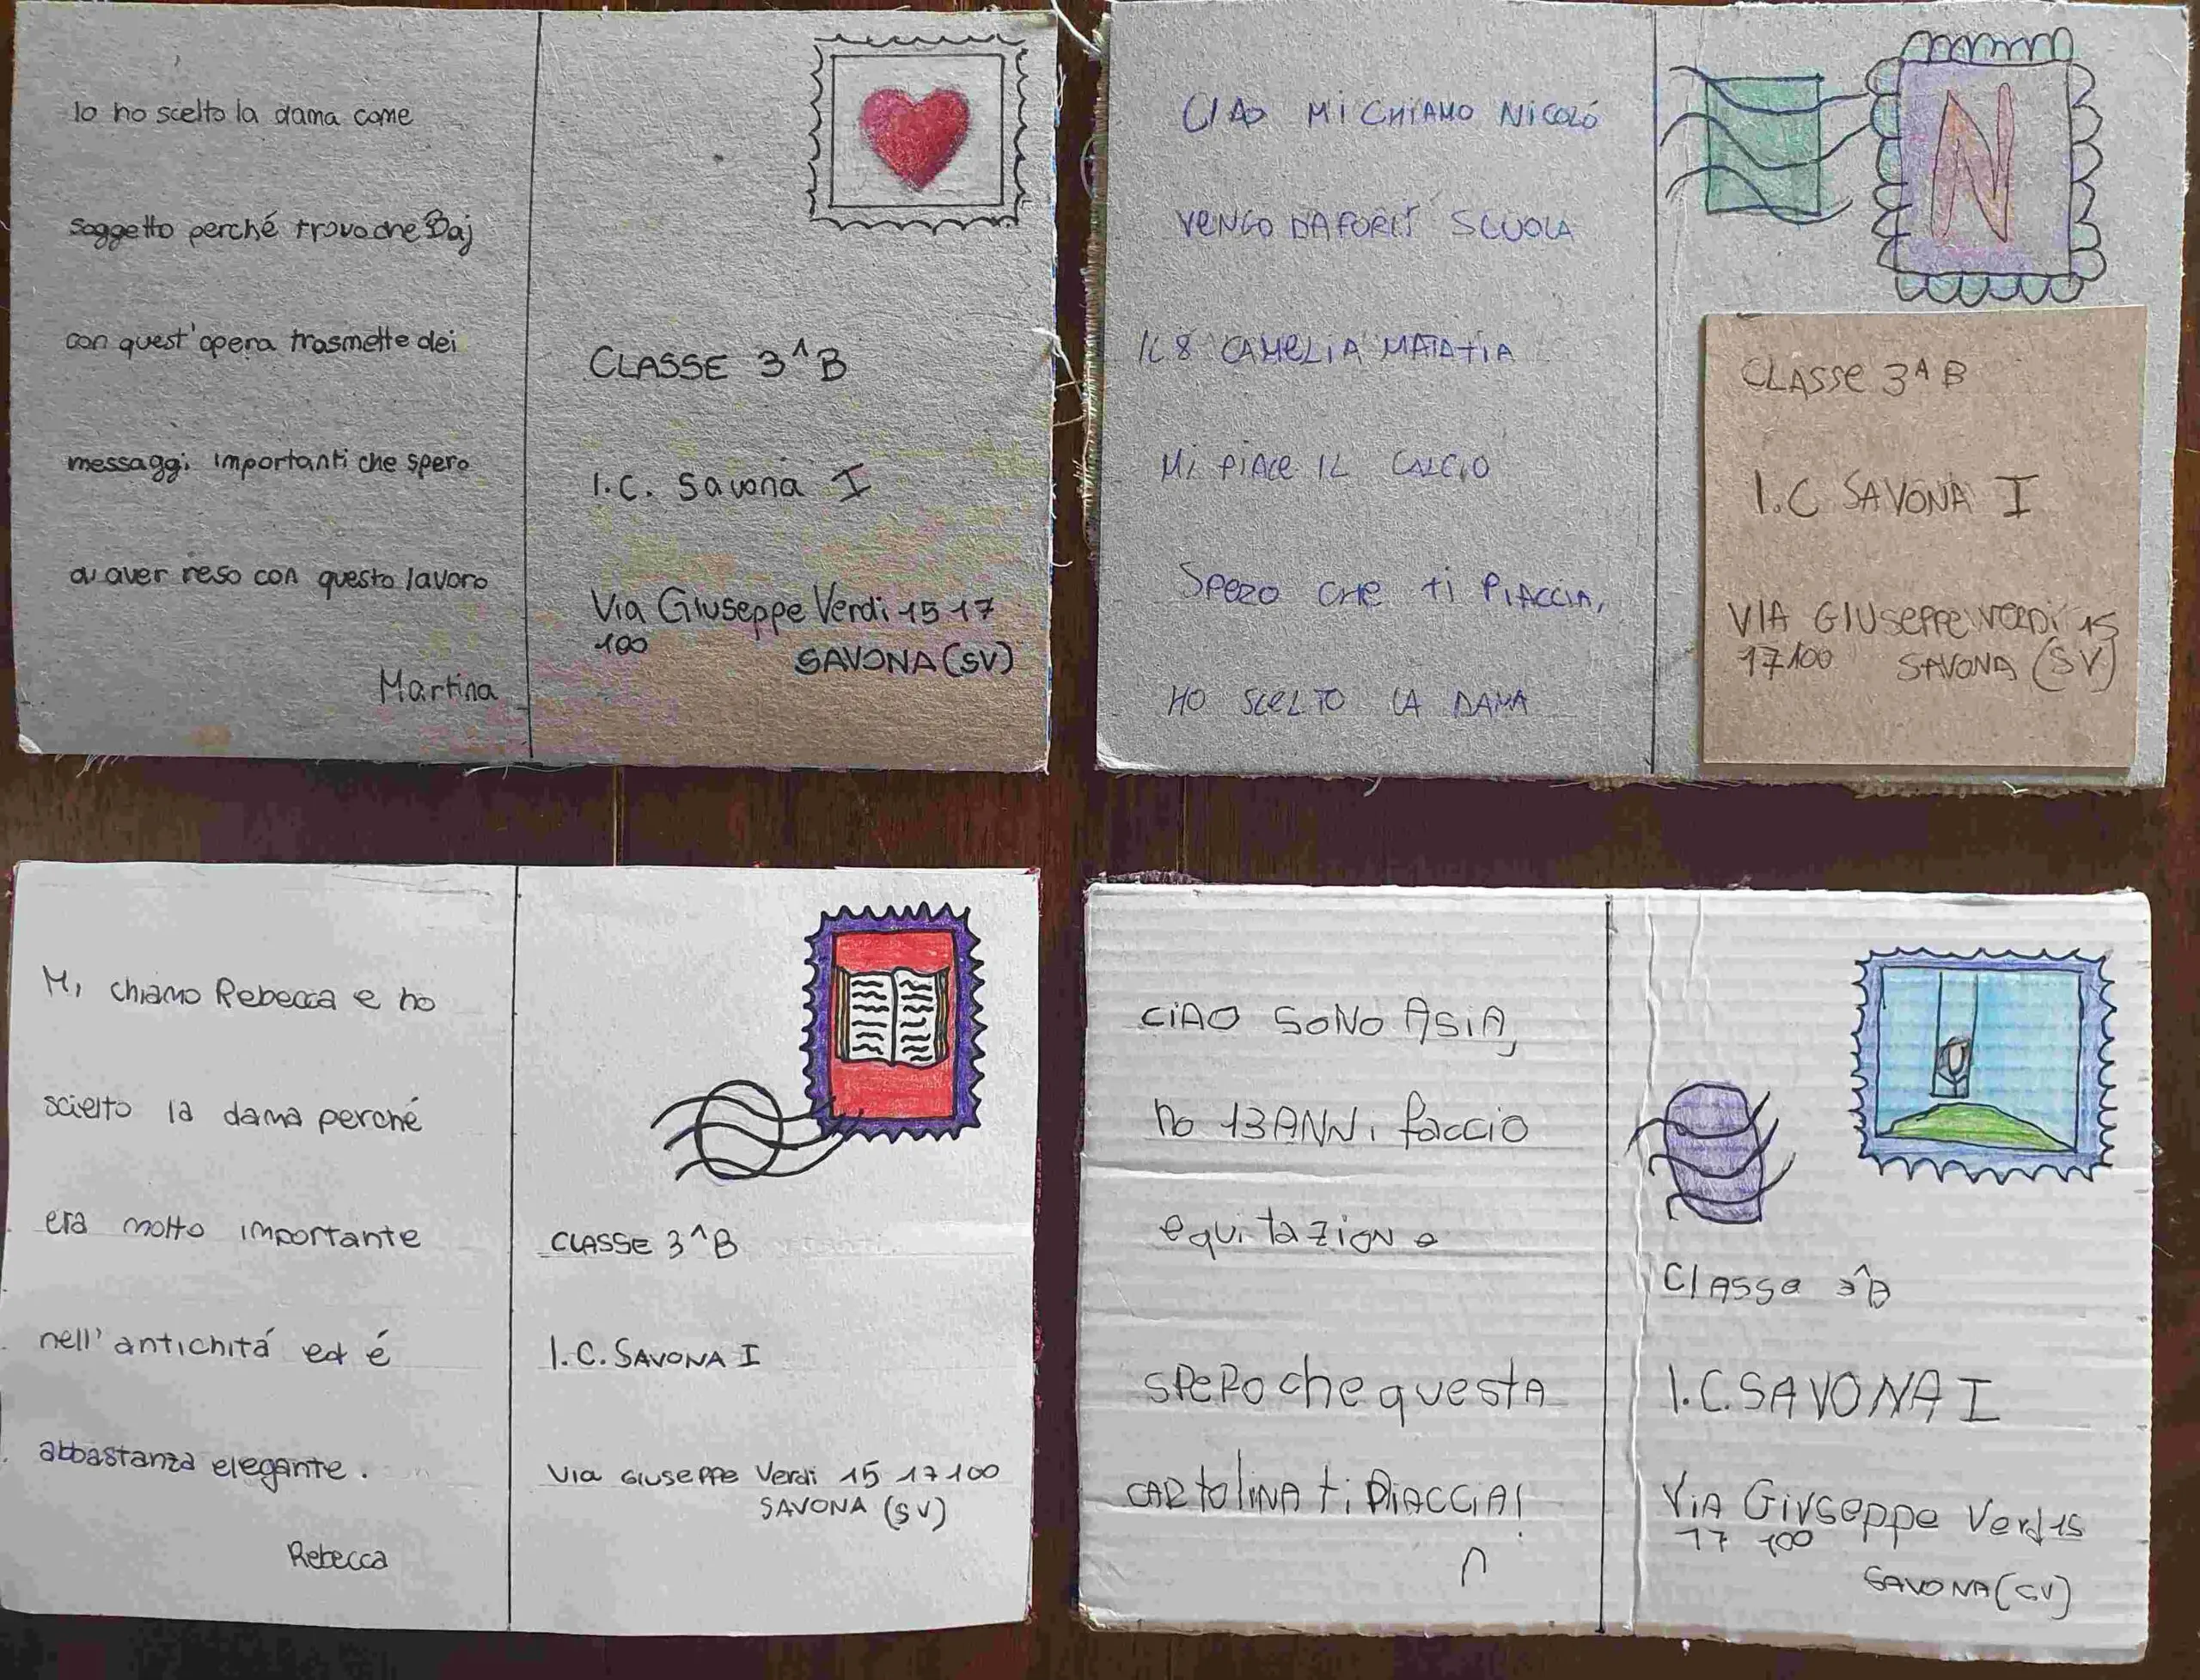 Io ho scelto la dama come
soggetto perché trovo che Baj
con quest'opera trasmette dei
messaggi importanti che spero
di aver reso con questo lavoro
Martina
CLASSE 3^B
I.C. Savona I
Via Giuseppe Verdi 15 17
100
SAVONA (SV)
CIAO MI CHIAMO NICOLÓ
VENGO DA FORLÌ SCUOLA
IC 8 CAMELIA MATATIA
MI PIACE IL CALCIO
SPERO CHE TI PIACCIA,
HO SCELTO LA DAMA
N
CLASSE 3^B
I.C SAVONA I
VIA GIUSEPPE VERDI 15
17100 SAVONA (SV)
Mi chiamo Rebecca e ho
scielto la dama perché
era molto importante
nell'antichitá ed é
abbastanza elegante.
Rebecca
CLASSE 3^B
I.C. SAVONA I
Via Giuseppe Verdi 15 17100
SAVONA (SV)
CIAO SONO ASIA,
ho 13 ANNi faccio
equitazione
SPERO che questA
CARtoliNA ti PiACCiA!
Classe 3^B
I.C. SAVONA I
ViA Giuseppe Verdi 15
17 100
SAVONA (SV)